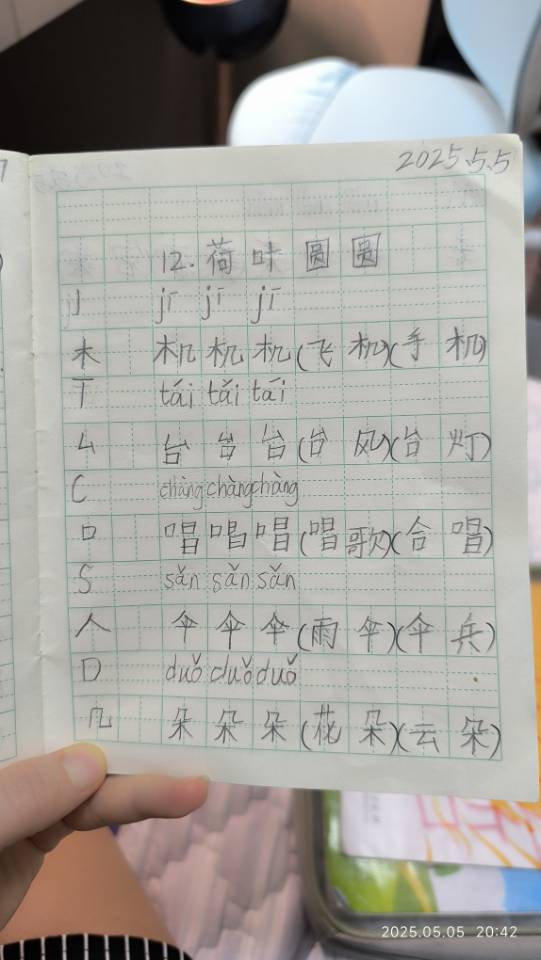 2025.5.5
12.荷叶圆圆
J jī jī jī
木 机机机(飞机)(手机)
T tái tái tái
厶 台台台(台风)(台灯)
C chàng chàng chàng
口 唱唱唱(唱歌)(合唱)
S sǎn sǎn sǎn
人 伞伞伞(雨伞)(伞兵)
D duǒ duǒ duǒ
几 朵朵朵(花朵)(云朵)
2025.05.05 20:42